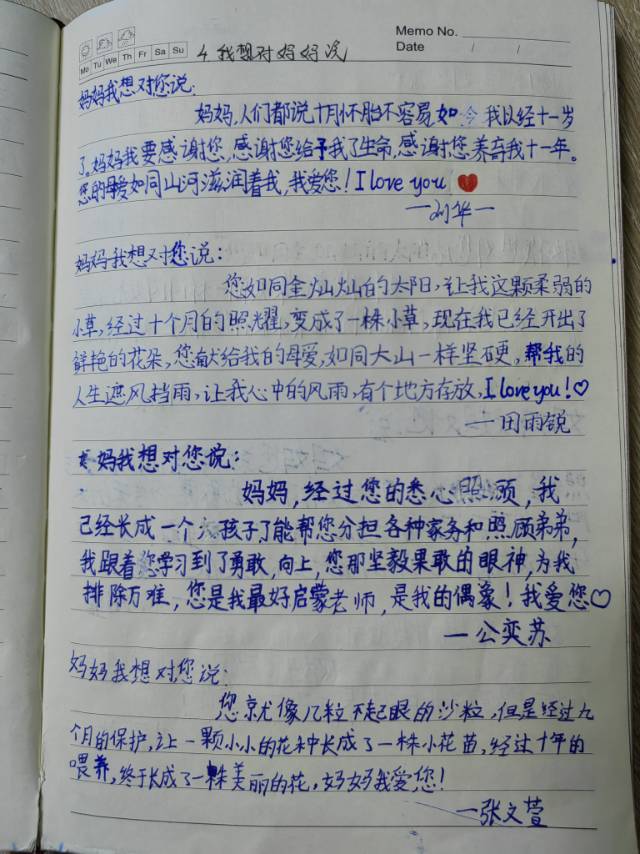 Memo No.
Mo Tu We Th Fr Sa Su
Date / /
4 我想对妈妈说
妈妈我想对您说
妈妈,人们都说十月怀胎不容易,如今我以经十一岁
了。妈妈我要感谢您,感谢您给予我了生命,感谢您养育我十一年。
您的母爱如同山河滋润着我,我爱您!I love you ❤
一刘华一
妈妈我想对您说:
您如同金灿灿的太阳,让我这颗柔弱的
小草,经过十个月的照耀,变成了一株小草,现在我已经开出了
鲜艳的花朵,您献给我的母爱,如同大山一样坚硬,帮我的
人生遮风挡雨,让我心中的风雨,有个地方存放,I love you!♡
一田雨锐
妈妈我想对您说:
妈妈,经过您的悉心照顾,我
已经长成一个大孩子了能帮您分担各种家务和照顾弟弟,
我跟着您学习到了勇敢,向上,您那坚毅果敢的眼神,为我
排除万难,您是我最好启蒙老师,是我的偶象!我爱您♡
一公奕苏
妈妈我想对您说:
您就像几粒不起眼的沙粒,但是经过九
个月的保护,让一颗小小的花种长成了一株小花苗,经过十年的
喂养,终于长成了一株美丽的花,妈妈我爱您!
一张文萱